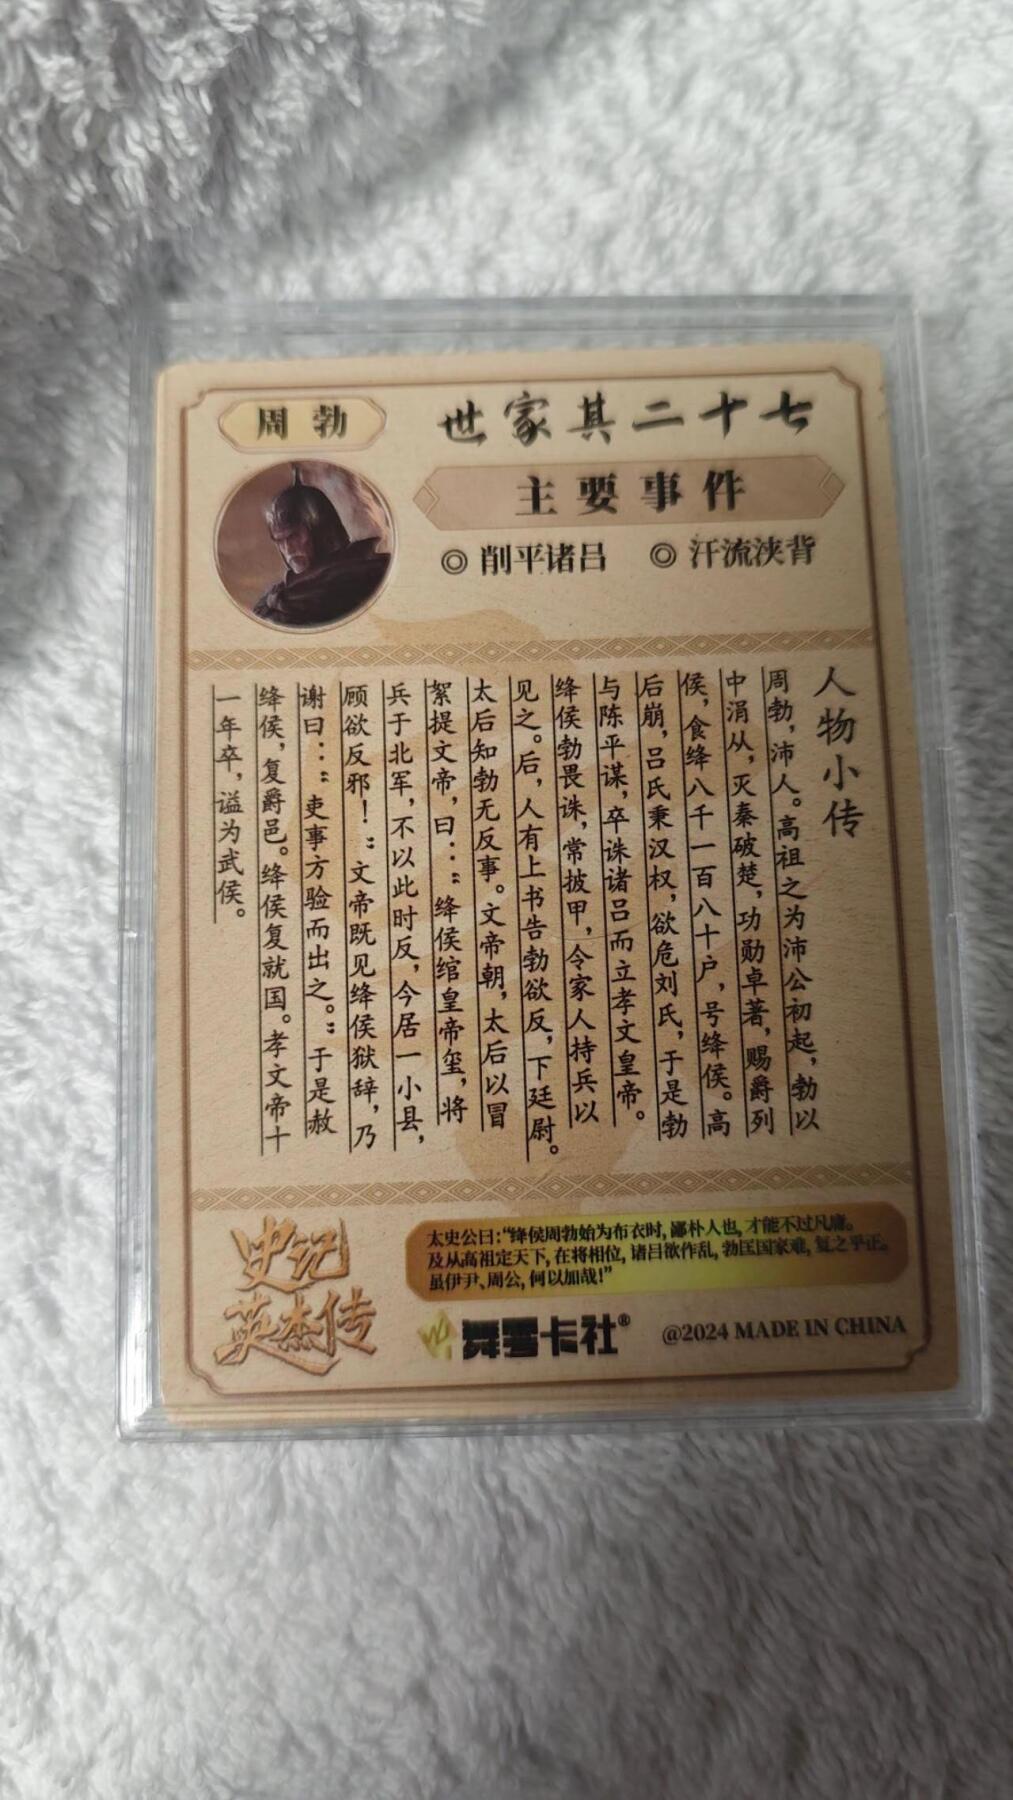 周勃
世家其二十七
主要事件
◎ 削平诸吕 ◎ 汗流浃背
人物小传
周勃，沛人。高祖之为沛公初起，勃以
中涓从，灭秦破楚，功勋卓著，赐爵列
侯，食绛八千一百八十户，号绛侯。高
后崩，吕氏秉汉权，欲危刘氏，于是勃
与陈平谋，卒诛诸吕而立孝文皇帝。
绛侯勃畏诛，常披甲，令家人持兵以
见之。后，人有上书告勃欲反，下廷尉。
太后知勃无反事。文帝朝，太后以冒
絮提文帝，曰：“绛侯绾皇帝玺，将
兵于北军，不以此时反，今居一小县，
顾欲反邪！”文帝既见绛侯狱辞，乃
谢曰：“吏事方验而出之。”于是赦
绛侯，复爵邑。绛侯复就国。孝文帝十
一年卒，谥为武侯。
史记
英杰传
太史公曰：“绛侯周勃始为布衣时，鄙朴人也，才能不过凡庸。
及从高祖定天下，在将相位，诸吕欲作乱，勃匡国家难，复之乎正。
虽伊尹、周公，何以加哉！”
舞雩卡社®
@2024 MADE IN CHINA